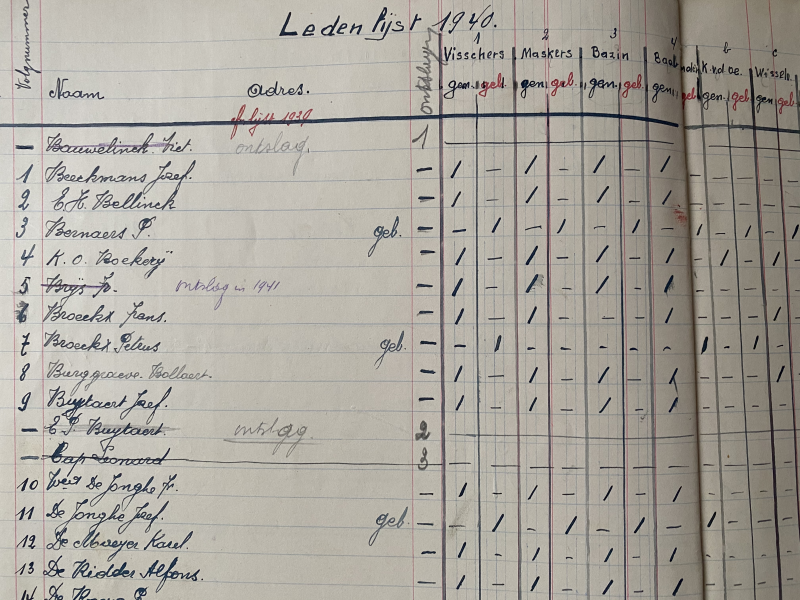 Ledenlijst 1940.
1 2 3 4 b c
Volgnummer Naam Adres. Visschers Maskers Bazin K.v.d.oe. Wissels.
gen. geb. gen. geb. gen. geb. gen. geb gen. geb gen geb
lijst 1939
— Bauwelinck Piet. ontslag. 1
1 Beeckmans Jozef.
2 E.H. Bellinck
3 Bernaers P. geb.
4 K.O. Boekerÿ
5 Brÿs Fr. ontslag in 1941
6 Broeckx Frans.
7 Broeckx Petrus geb.
8 Burggraeve-Bollaert.
9 Buytaert Jozef.
— E.P. Buytaert. ontslag. 2
— Cap Leonard 3
10 De Jonghe Fr.
11 De Jonghe Jozef. geb.
12 De Maeyer Karel.
13 De Ridder Alfons.
14 De